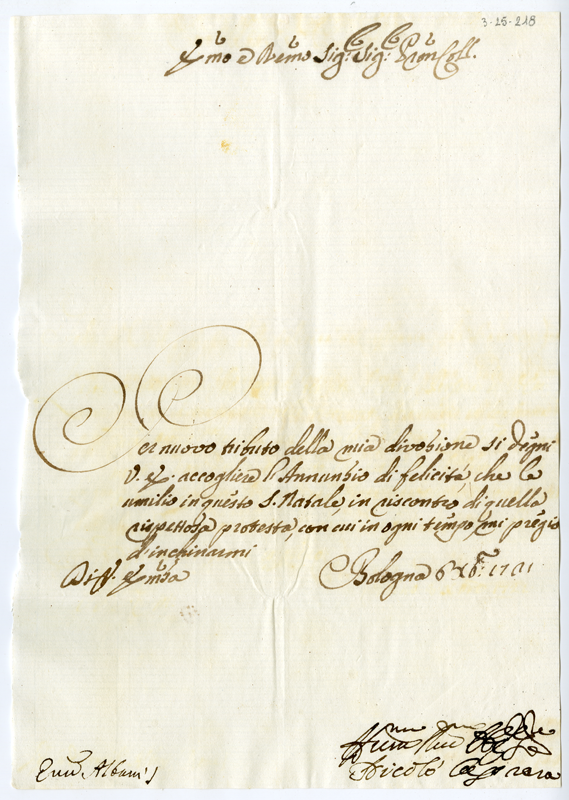 3-25-218
E.mo e Rev.mo Sig.r Sig.r Pron Coll.
Per nuovo tributo della mia divozione si degni
V. E. accogliere l'Annunzio di felicità, che le
umilio in questo S. Natale in riscontro di quella
rispettosa protesta, con cui in ogni tempo mi pregio
d'inchinarmi
Di V. Em.za Bologna 6 Xb.re 1721
Hum.mo
Nicolò
Em. Albani